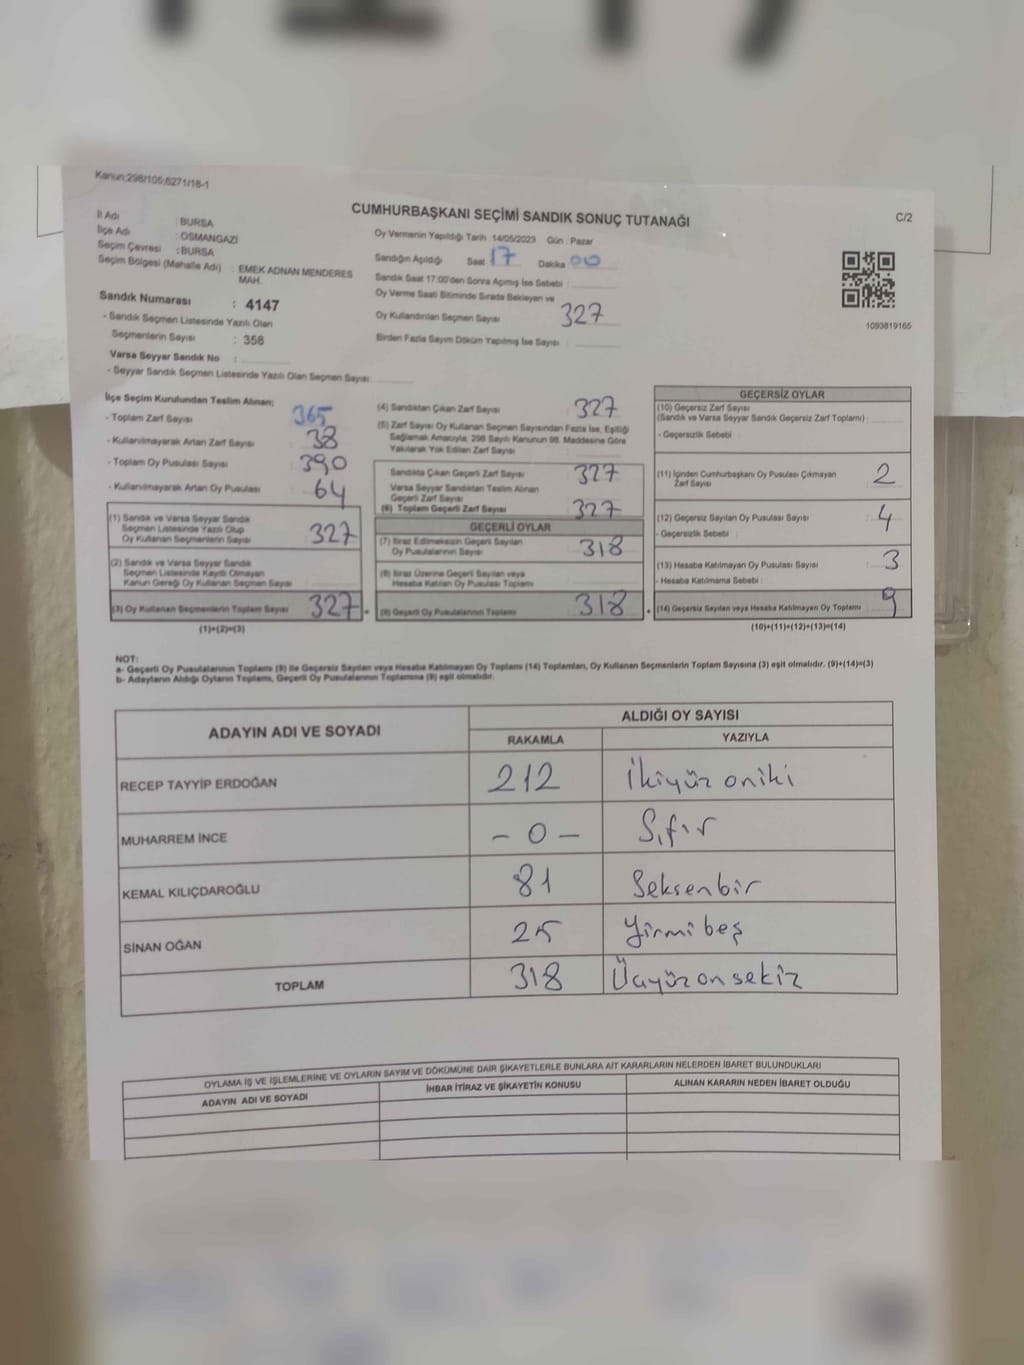 Kanun:298/105;6271/18-1
CUMHURBAŞKANI SEÇİMİ SANDIK SONUÇ TUTANAĞI
C/2
İl Adı : BURSA
İlçe Adı : OSMANGAZİ
Seçim Çevresi : BURSA
Seçim Bölgesi (Mahalle Adı) : EMEK ADNAN MENDERES MAH.
Sandık Numarası : 4147
- Sandık Seçmen Listesinde Yazılı Olan
Seçmenlerin Sayısı : 358
Varsa Seyyar Sandık No :
- Seyyar Sandık Seçmen Listesinde Yazılı Olan Seçmen Sayısı:
Oy Vermenin Yapıldığı Tarih : 14/05/2023 Gün : Pazar
Sandığın Açıldığı Saat 17 Dakika 00
Sandık Saat 17:00'den Sonra Açımış İse Sebebi :
Oy Verme Saati Bitiminde Sırada Bekleyen ve
Oy Kullandırılan Seçmen Sayısı 327
Birden Fazla Sayım Döküm Yapılmış İse Sayısı :
1093819165
İlçe Seçim Kurulundan Teslim Alınan;
- Toplam Zarf Sayısı 365
- Kullanılmayarak Artan Zarf Sayısı 38
- Toplam Oy Pusulası Sayısı 390
- Kullanılmayarak Artan Oy Pusulası 64
(1) Sandık ve Varsa Seyyar Sandık
Seçmen Listesinde Yazılı Olup
Oy Kullanan Seçmenlerin Sayısı 327
(2) Sandık ve Varsa Seyyar Sandık
Seçmen Listesinde Kayıtlı Olmayan
Kanun Gereği Oy Kullanan Seçmen Sayısı
(3) Oy Kullanan Seçmenlerin Toplam Sayısı 327 =
(1)+(2)=(3)
(4) Sandıktan Çıkan Zarf Sayısı 327
(5) Zarf Sayısı Oy Kullanan Seçmen Sayısından Fazla İse, Eşitliği
Sağlamak Amacıyla, 298 Sayılı Kanunun 98. Maddesine Göre
Yakılarak Yok Edilen Zarf Sayısı
Sandıkta Çıkan Geçerli Zarf Sayısı 327
Varsa Seyyar Sandıktan Teslim Alınan
Geçerli Zarf Sayısı
(6) Toplam Geçerli Zarf Sayısı 327
GEÇERLİ OYLAR
(7) İtiraz Edilmeksizin Geçerli Sayılan
Oy Pusulalarının Sayısı 318
(8) İtiraz Üzerine Geçerli Sayılan veya
Hesaba Katılan Oy Pusulası Toplamı
(9) Geçerli Oy Pusulalarının Toplamı 318 +
GEÇERSİZ OYLAR
(10) Geçersiz Zarf Sayısı
(Sandık ve Varsa Seyyar Sandık Geçersiz Zarf Toplamı) :
- Geçersizlik Sebebi :
(11) İçinden Cumhurbaşkanı Oy Pusulası Çıkmayan
Zarf Sayısı : 2
(12) Geçersiz Sayılan Oy Pusulası Sayısı : 4
- Geçersizlik Sebebi :
(13) Hesaba Katılmayan Oy Pusulası Sayısı : 3
- Hesaba Katılmama Sebebi :
(14) Geçersiz Sayılan veya Hesaba Katılmayan Oy Toplamı : 9
(10)+(11)+(12)+(13)=(14)
NOT:
a- Geçerli Oy Pusulalarının Toplamı (9) ile Geçersiz Sayılan veya Hesaba Katılmayan Oy Toplamı (14) Toplamları, Oy Kullanan Seçmenlerin Toplam Sayısına (3) eşit olmalıdır. (9)+(14)=(3)
b- Adayların Aldığı Oyların Toplamı, Geçerli Oy Pusulalarının Toplamına (9) eşit olmalıdır.
ADAYIN ADI VE SOYADI ALDIĞI OY SAYISI
RAKAMLA YAZIYLA
RECEP TAYYİP ERDOĞAN 212 İkiyüz oniki
MUHARREM İNCE - 0 - Sıfır
KEMAL KILIÇDAROĞLU 81 Seksenbir
SİNAN OĞAN 25 Yirmi beş
TOPLAM 318 Üçyüz on sekiz
OYLAMA İŞ VE İŞLEMLERİNE VE OYLARIN SAYIM VE DÖKÜMÜNE DAİR ŞİKAYETLERLE BUNLARA AİT KARARLARIN NELERDEN İBARET BULUNDUKLARI
ADAYIN ADI VE SOYADI İHBAR İTİRAZ VE ŞİKAYETİN KONUSU ALINAN KARARIN NEDEN İBARET OLDUĞU